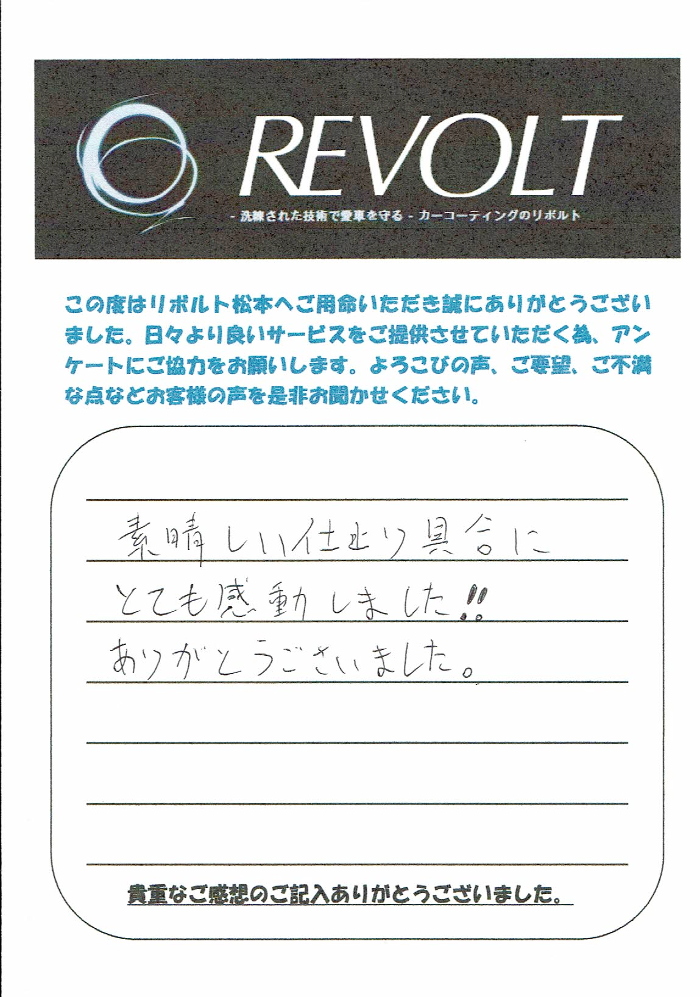 REVOLT
- 洗練された技術で愛車を守る - カーコーティングのリボルト
この度はリボルト松本へご用命いただき誠にありがとうござい
ました。日々より良いサービスをご提供させていただく為、アン
ケートにご協力をお願いします。よろこびの声、ご要望、ご不満
な点などお客様の声を是非お聞かせください。
素晴しい仕上り具合に
とても感動しました!!
ありがとうございました。
貴重なご感想のご記入ありがとうございました。